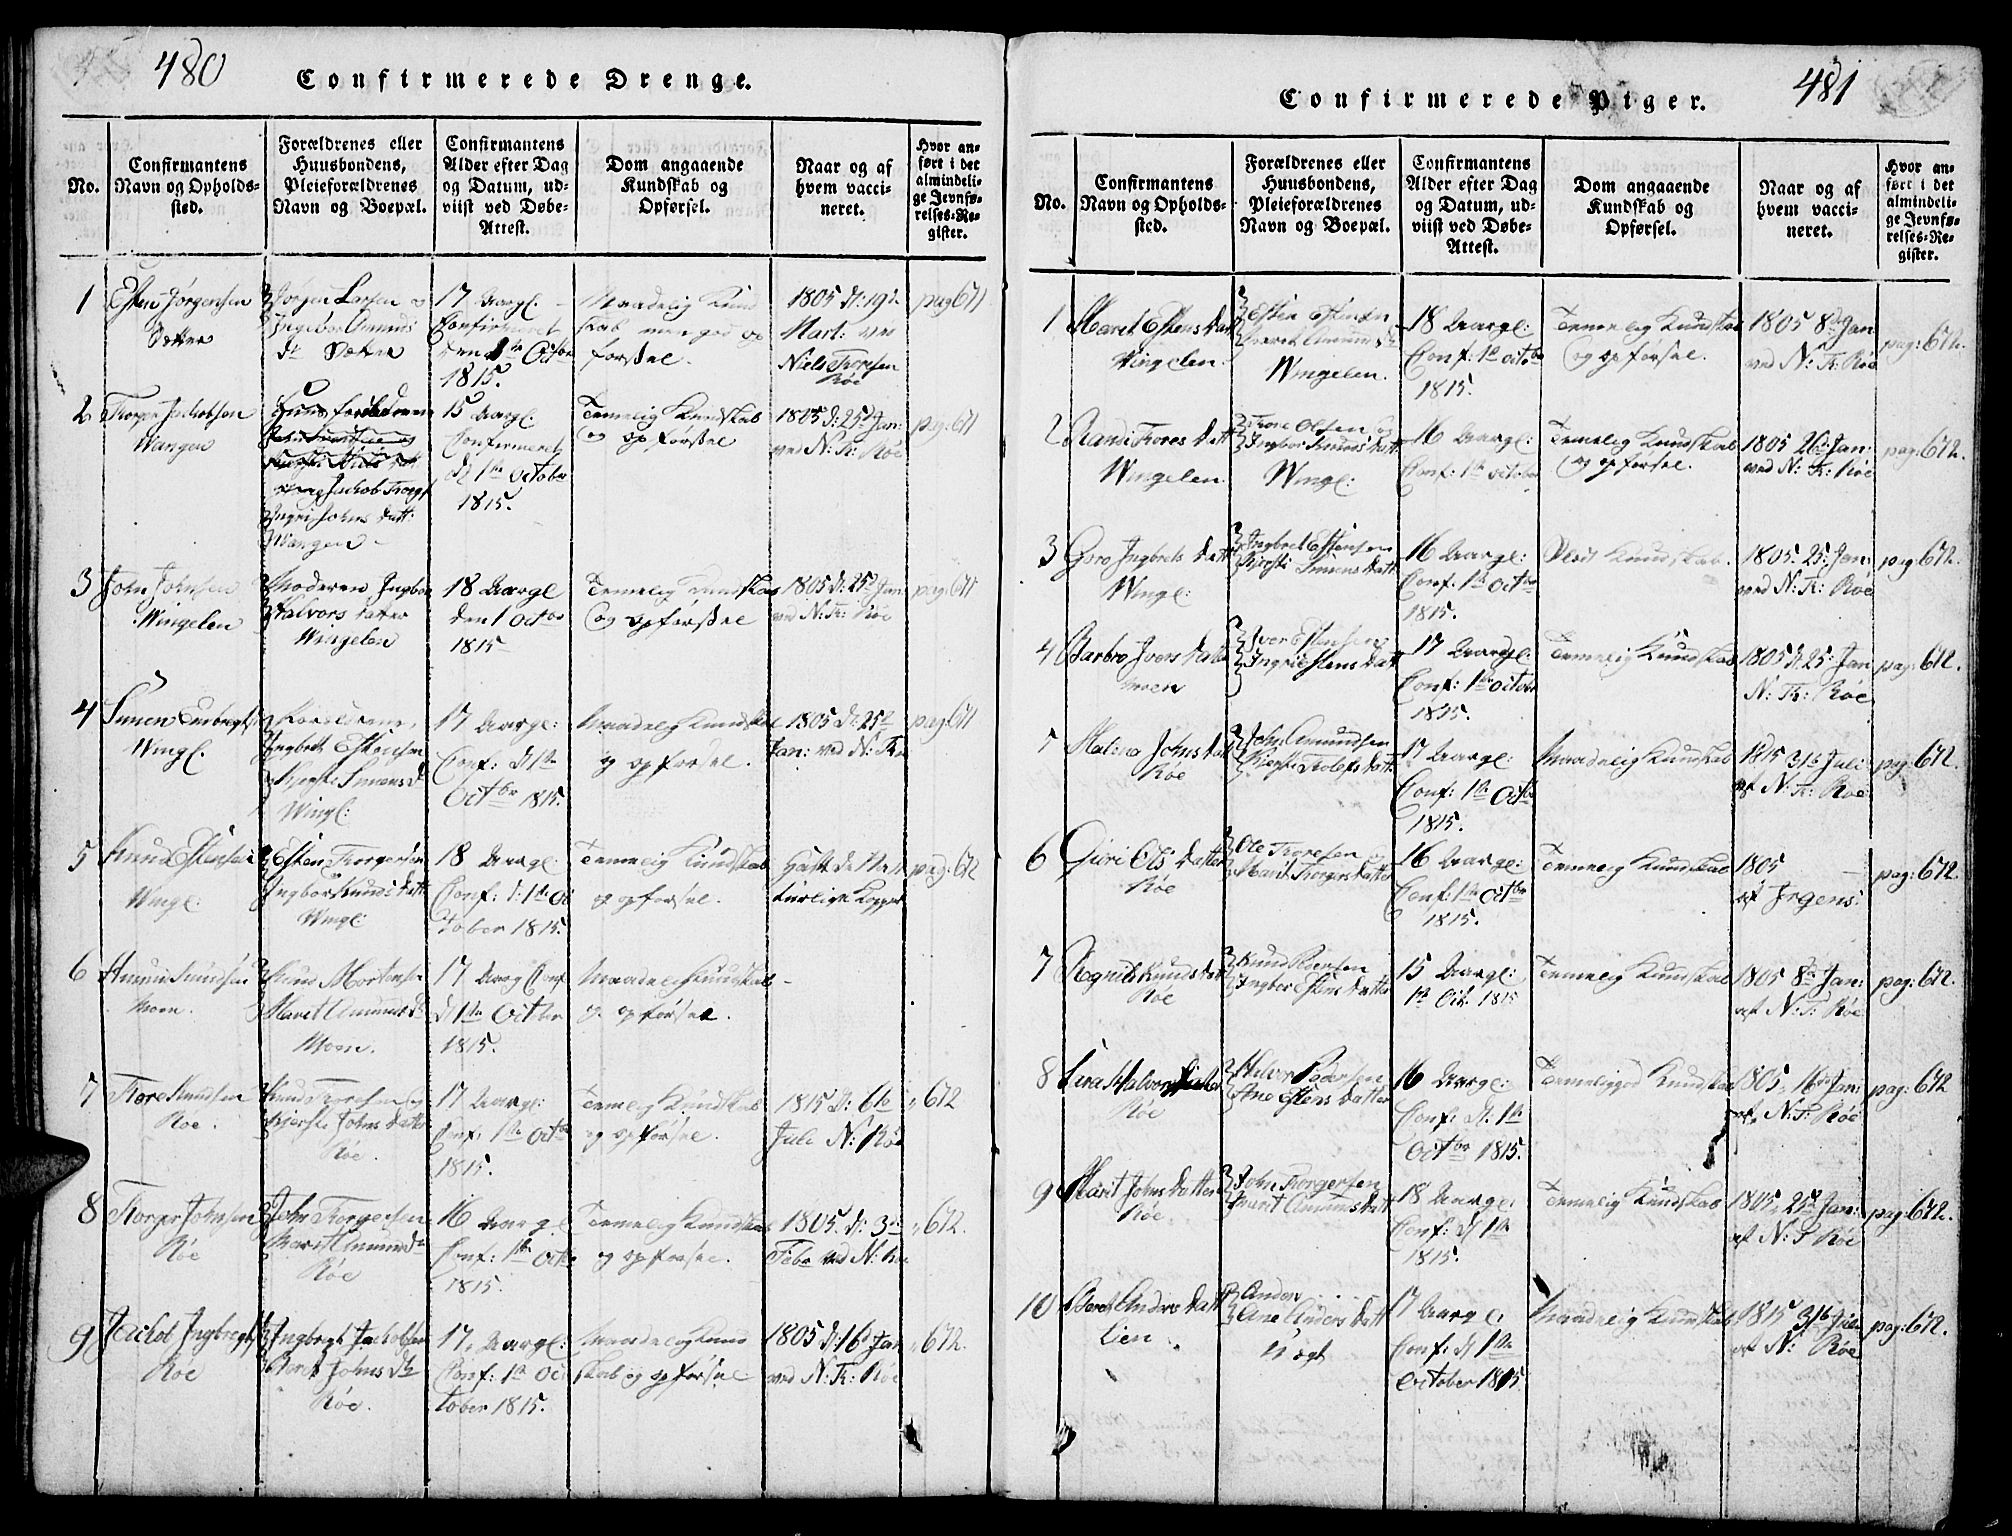 480
Confirmerede Drenge.
No.
Confirmantens
Navn og Opholds-
sted.
Forældrenes eller
Huusbondens,
Pleieforældrenes
Navn og Boepæl.
Confirmantens
Alder efter Dag
og Datum, ud-
viist ved Døbe-
Attest.
Dom angaaende
Kundskab og
Opførsel.
Naar og af
hvem vacci-
neret.
Hvor an-
ført i det
almindeli-
ge Jevnfø-
relses-Re-
gister.
1
Esten Jørgensen
Jorgen Larsen
17 Aargl.
Confirmeret
Den 1te Octbr
1815.
Maadelig Kund
skab men god op
forsel.
1805 d: 19de
Mart: ved
Niels Toresen
Röe
pag 671
2
Torger Jachobsen
Wangen
Jachob Torgs
Ingri Johns datt:
Wangen
15 Aargl:
Confirmeret
d 1te Octobr
1815.
Temelig Kundskab
og opforsel
1805 d: 25d Jan:
ved N: Tr: Röe
pag: 671
3
John Johnsen
Wingelen
Moderen Ingbor
Halvors datter
Wingelen
18 Aargl
den 1 Octbr
1815
Temelig Kundskab
og opforsel
1805 d: 25d Jan:
ved N: Tr: Röe
pag: 671
4
Simen
Wingl.
Ingbret Estensen
Kjersti Simens d
Wingl:
17 Aargl:
Conf: d 1te
Octbr 1815.
Maadelig Kundskab
og opforsel.
1805 d: 25d
Jan: ved N: Tr:
pag: 671
5
Knud Estensen
Wingl:
Esten Torgersen
Ingbor Knuds datt
Wingl
18 Aargl
Conf: d: 1te Oc
tober 1815.
Temelig Kundskab
og opforsel.
Havt de Nat
turlige Kopper
pag: 672
6
Amund Knudsen
Moen.
Knud Mortensen
Maret Amunds Dr
Moen.
17 Aarg Conf
d 1te Octbr
1815.
Maadelig Kundskab
og opførsel.
-
7
Tore Knudsen
Röe.
Knud Toresen og
Kjersti Johns datter
Röe.
17 Aargl:
Conf: 1te Octbr
1815.
Temelig Kundskab
og opførsel.
1815 d: 6te
Juli N: Röe
" 672
8
Torger Johnsen
Röe
John Torgersen
Marit Amunds Dr
Röe
16 Aargl
Conf: 1te Octbr
1815.
Temelig Kundskab
og opforsel.
1805. d: 3de
Febr ved N: Röe
" 672.
9
Jachob Ingbregts
Röe
Ingbregt Jachobsen
Beret Johns Dr
Röe.
17. Aargl:
Conf: 1te Oc
tober 1815.
Maadelig Kund
skab og opførsel
1805 d: 16d Jan
ved N: Tr: Röe
" 672.
481
Confirmerede Piger.
No.
Confirmantens
Navn og Opholds-
sted.
Forældrenes eller
Huusbondens,
Pleieforældrenes
Navn og Boepæl.
Confirmantens
Alder efter Dag
og Datum, ud-
viist ved Døbe-
Attest.
Dom angaaende
Kundskab og
Opførsel.
Naar og af
hvem vacci-
neret.
Hvor an-
ført i det
almindeli-
ge Jevnfø-
relses-Re-
gister.
1
Maret Estens datt
Wingelen
Esten Estensen
Maret Amunds Dr
Wingelen.
18 Aargl:
Conf: 1te Octobr
1815.
Temelig Kundskab
og opførsel.
1805 8de Jan
ved N: Tr: Röe
pag: 672.
2
Randi Tores datt
Wingelen
Tore Olsen og
Ingbor Simens datt
Wingl:
16 Aargl:
Conf: 1te October
Temelig Kundskab
og opforsel.
1805 26d Jan:
ved N: Tr: Röe
pag: 672.
3
Goro Ingbrets datt
Wingl:
Ingbret Estensen
Kjersti Simens datt
16 Aargl:
Conf: 1te Octbr
1815.
Slet Kundskab.
1805. 25. Jan:
ved N: Tr: Röe
pag: 672.
4
Barbro Ivers datter
Moen
Iver Estensen
Ingri Estens datt
17 Aargl:
Conf: 1te Octobr
1815.
Temelig Kundskab
1805 d: 25: Jan
N: Tr: Röe
pag: 672.
Malina Johns datt
Röe
John Amundsen
Kjersti Tolefs datt
17 Aargl:
Conf: 1te Octbr
1815.
Maadelig Kundskab
1815 31te Juli
af N: Tr: Röe
pag: 672.
6
Guri Ols datter
Röe
Ole Toresen
Marit Torgers datter
16 Aargl:
Conf: 1te Octbr
1815.
Temelig Kundskab
1805
af Jrgens:
pag: 672.
7
Sigrid Knuds datt
Röe
Knud
Ingbor Estens datter
15 Aargl:
1te Oct. 1815
Temelig Kundskab
1805 8de Jan:
af N: T: Röe
pag: 672.
8
Halvors datter
Röe
Halvor Pedersen
Ane Estens datter
16 Aargl:
Conf: d. 1te
Octbr 1815.
Temelig god Kundskab
1805. 16de Jan:
af N: T: Röe
pag: 672
9
Marit Johns datter
Röe
John Torgersen
Marit Amunds datt
18 Aargl:
Conf: d 1te
1815.
Temelig Kundskab
1805. 25de Jan:
af N: T Röe
pag: 672.
10
Beret Anders datt
Lien.
Anders
Ane Anders datt
17 Aargl.
Conf: d 1te
October 1815.
Maadelig Kundskab
1815 31te Juli
af N: Röe
pag: 672.